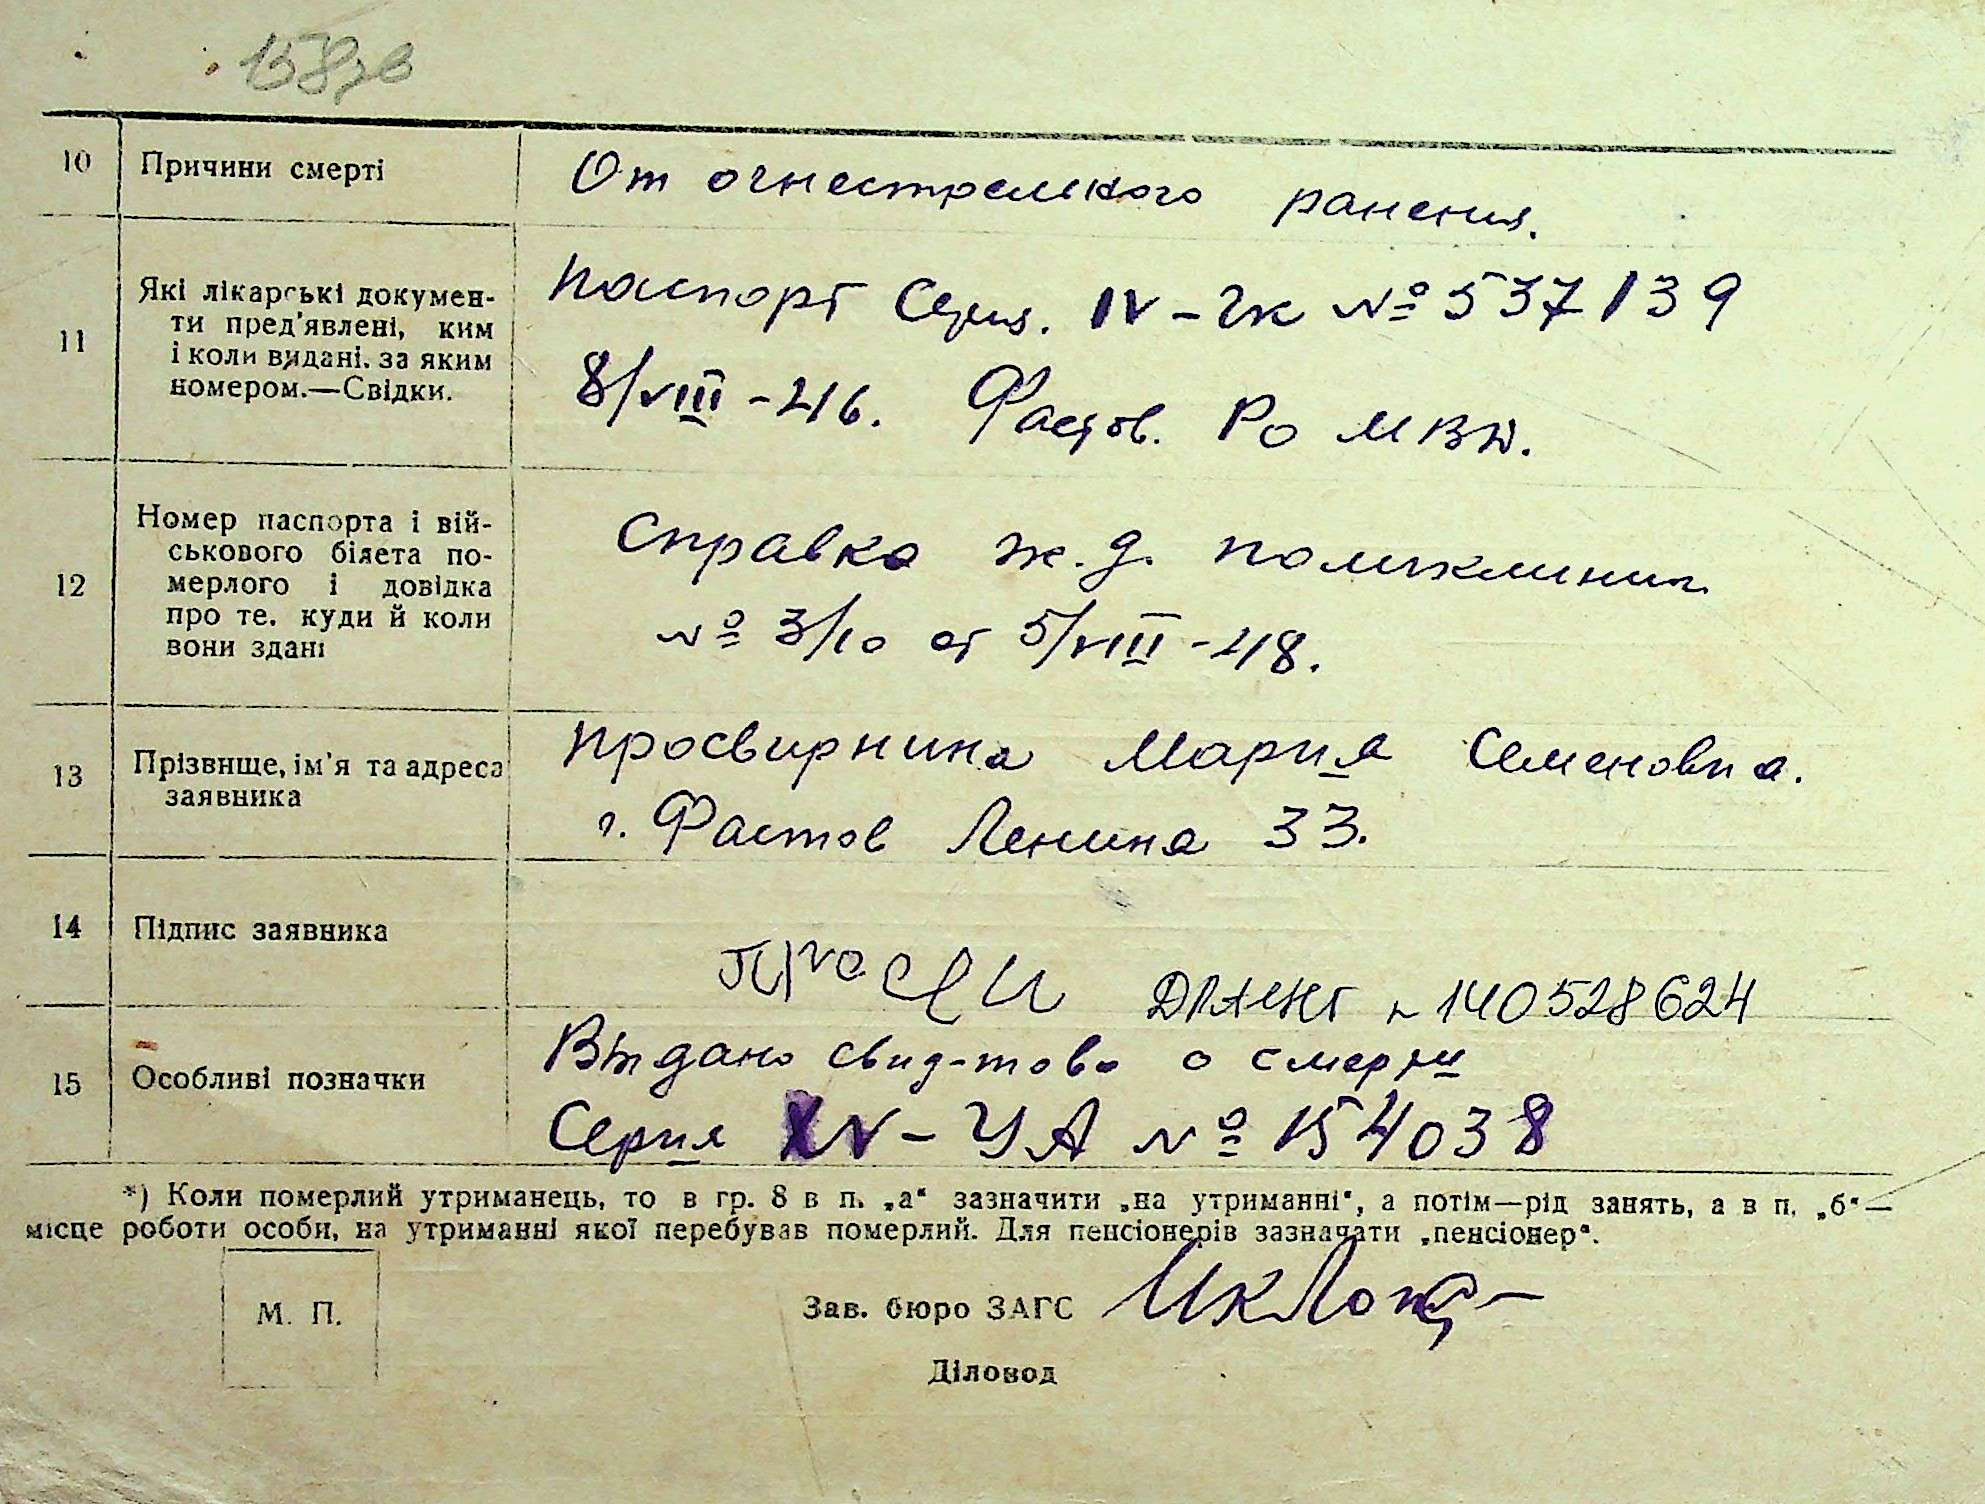 158зв
10 Причини смерті От огнестрельного ранения.
11 Які лікарські докумен-
ти пред'явлені, ким
і коли видані, за яким
номером.—Свідки.
Паспорт Серия. IV-Чк № 537139
8/VIII-46. Фастов. РО МВД.
12 Номер паспорта і вій-
ськового білета по-
мерлого і довідка
про те, куди й коли
вони здані
Справка ж.д. поликлиник
№ 3/10 от 5/VIII-48.
13 Прізвище, ім'я та адреса
заявника
Просвирнина Мария Семеновна.
г. Фастов Ленина 33.
14 Підпис заявника
№ 140528624
15 Особливі позначки
Выдано свид-тово о смерти
Серия XV-УА № 154038
*) Коли померлий утриманець, то в гр. 8 в п. „а“ зазначити „на утриманні“, а потім—рід занять, а в п. „б“—
місце роботи особи, на утриманні якої перебував померлий. Для пенсіонерів зазначати „пенсіонер“.
М. П.
Зав. бюро ЗАГС
Діловод